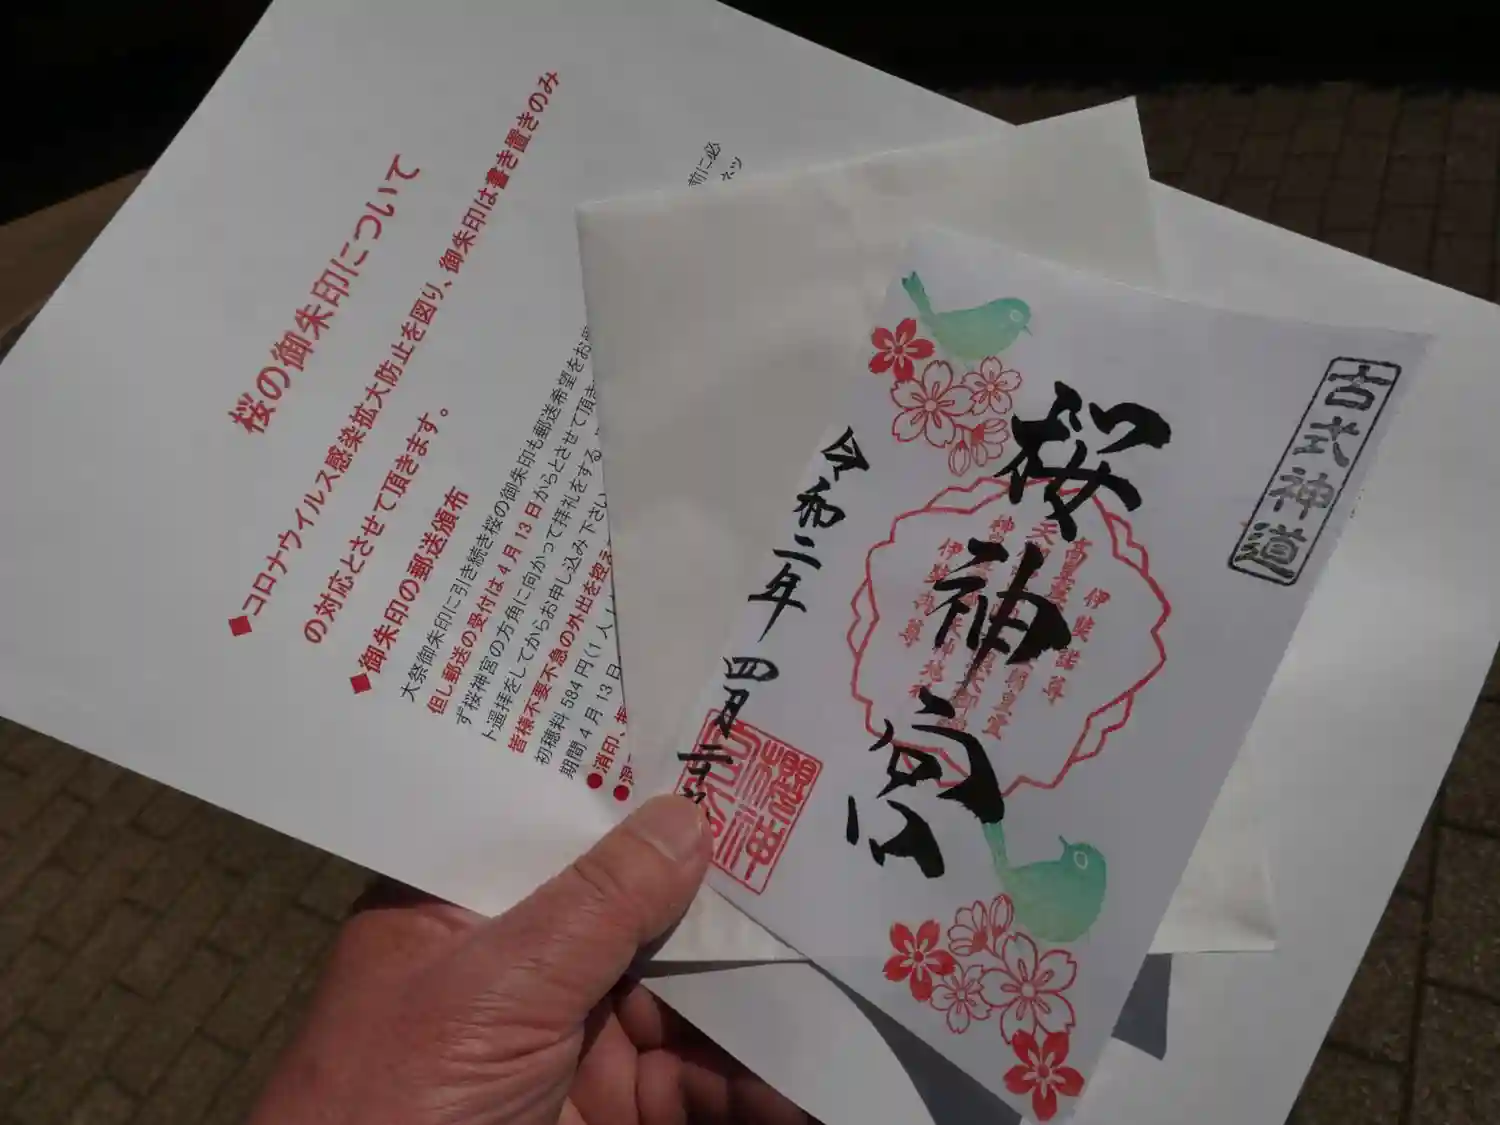 桜の御朱印について
◆コロナウイルス感染拡大防止を図り、御朱印は書き置きのみ
の対応とさせて頂きます。
◆御朱印の郵送頒布
大祭御朱印に引き続き桜の御朱印も郵送希望をお
前に必
但し郵送の受付は4月13日からとさせて頂き
ず桜神宮の方角に向かって拝礼をする
ネッ
ト遥拝をしてからお申し込み下さい
皆様不要不急の外出を控え
初穂料 584円(1人
期間 4月13日
●消印、
●
古式神道
桜神宮
伊弉諾尊
伊弉冉尊
令和二年 四月二十
櫻神